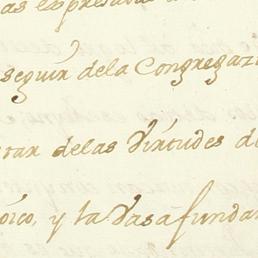 as expresadas
seguir dela Congregaz
tar delas Virtudes d
oico, y la Vasa funda